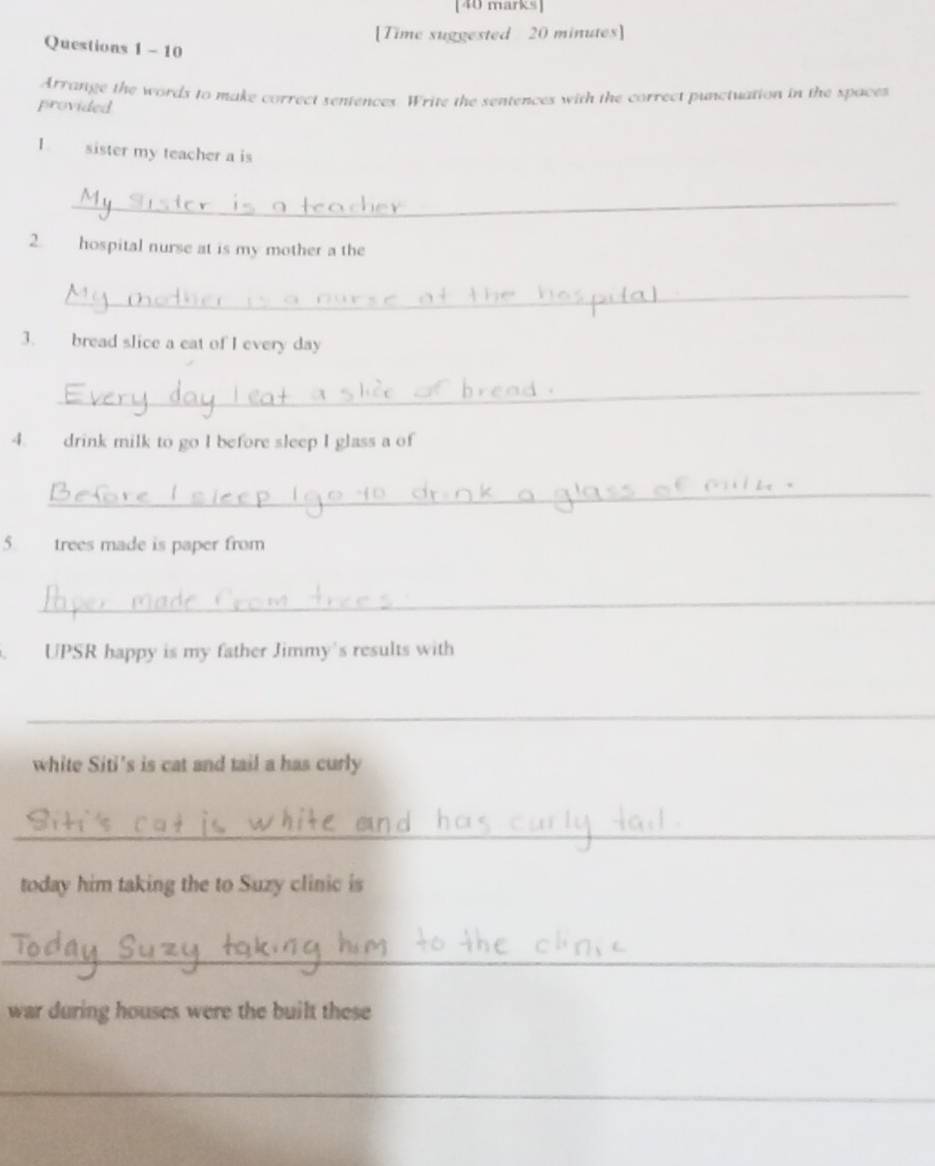 [40 marks]
[Time suggested 20 minutes]
Questions 1 - 10
Arrange the words to make correct sentences. Write the sentences with the correct punctuation in the spaces
provided
1. sister my teacher a is
My sister is a teacher
2. hospital nurse at is my mother a the
My mother is a nurse at the hospital.
3. bread slice a eat of I every day
Every day I eat a slice of bread.
4. drink milk to go I before sleep I glass a of
Before I sleep I go to drink a glass of milk.
5. trees made is paper from
Paper made from trees.
UPSR happy is my father Jimmy's results with
white Siti's is cat and tail a has curly
Siti's cat is white and has curly tail.
today him taking the to Suzy clinic is
Today Suzy taking him to the clinic
war during houses were the built these